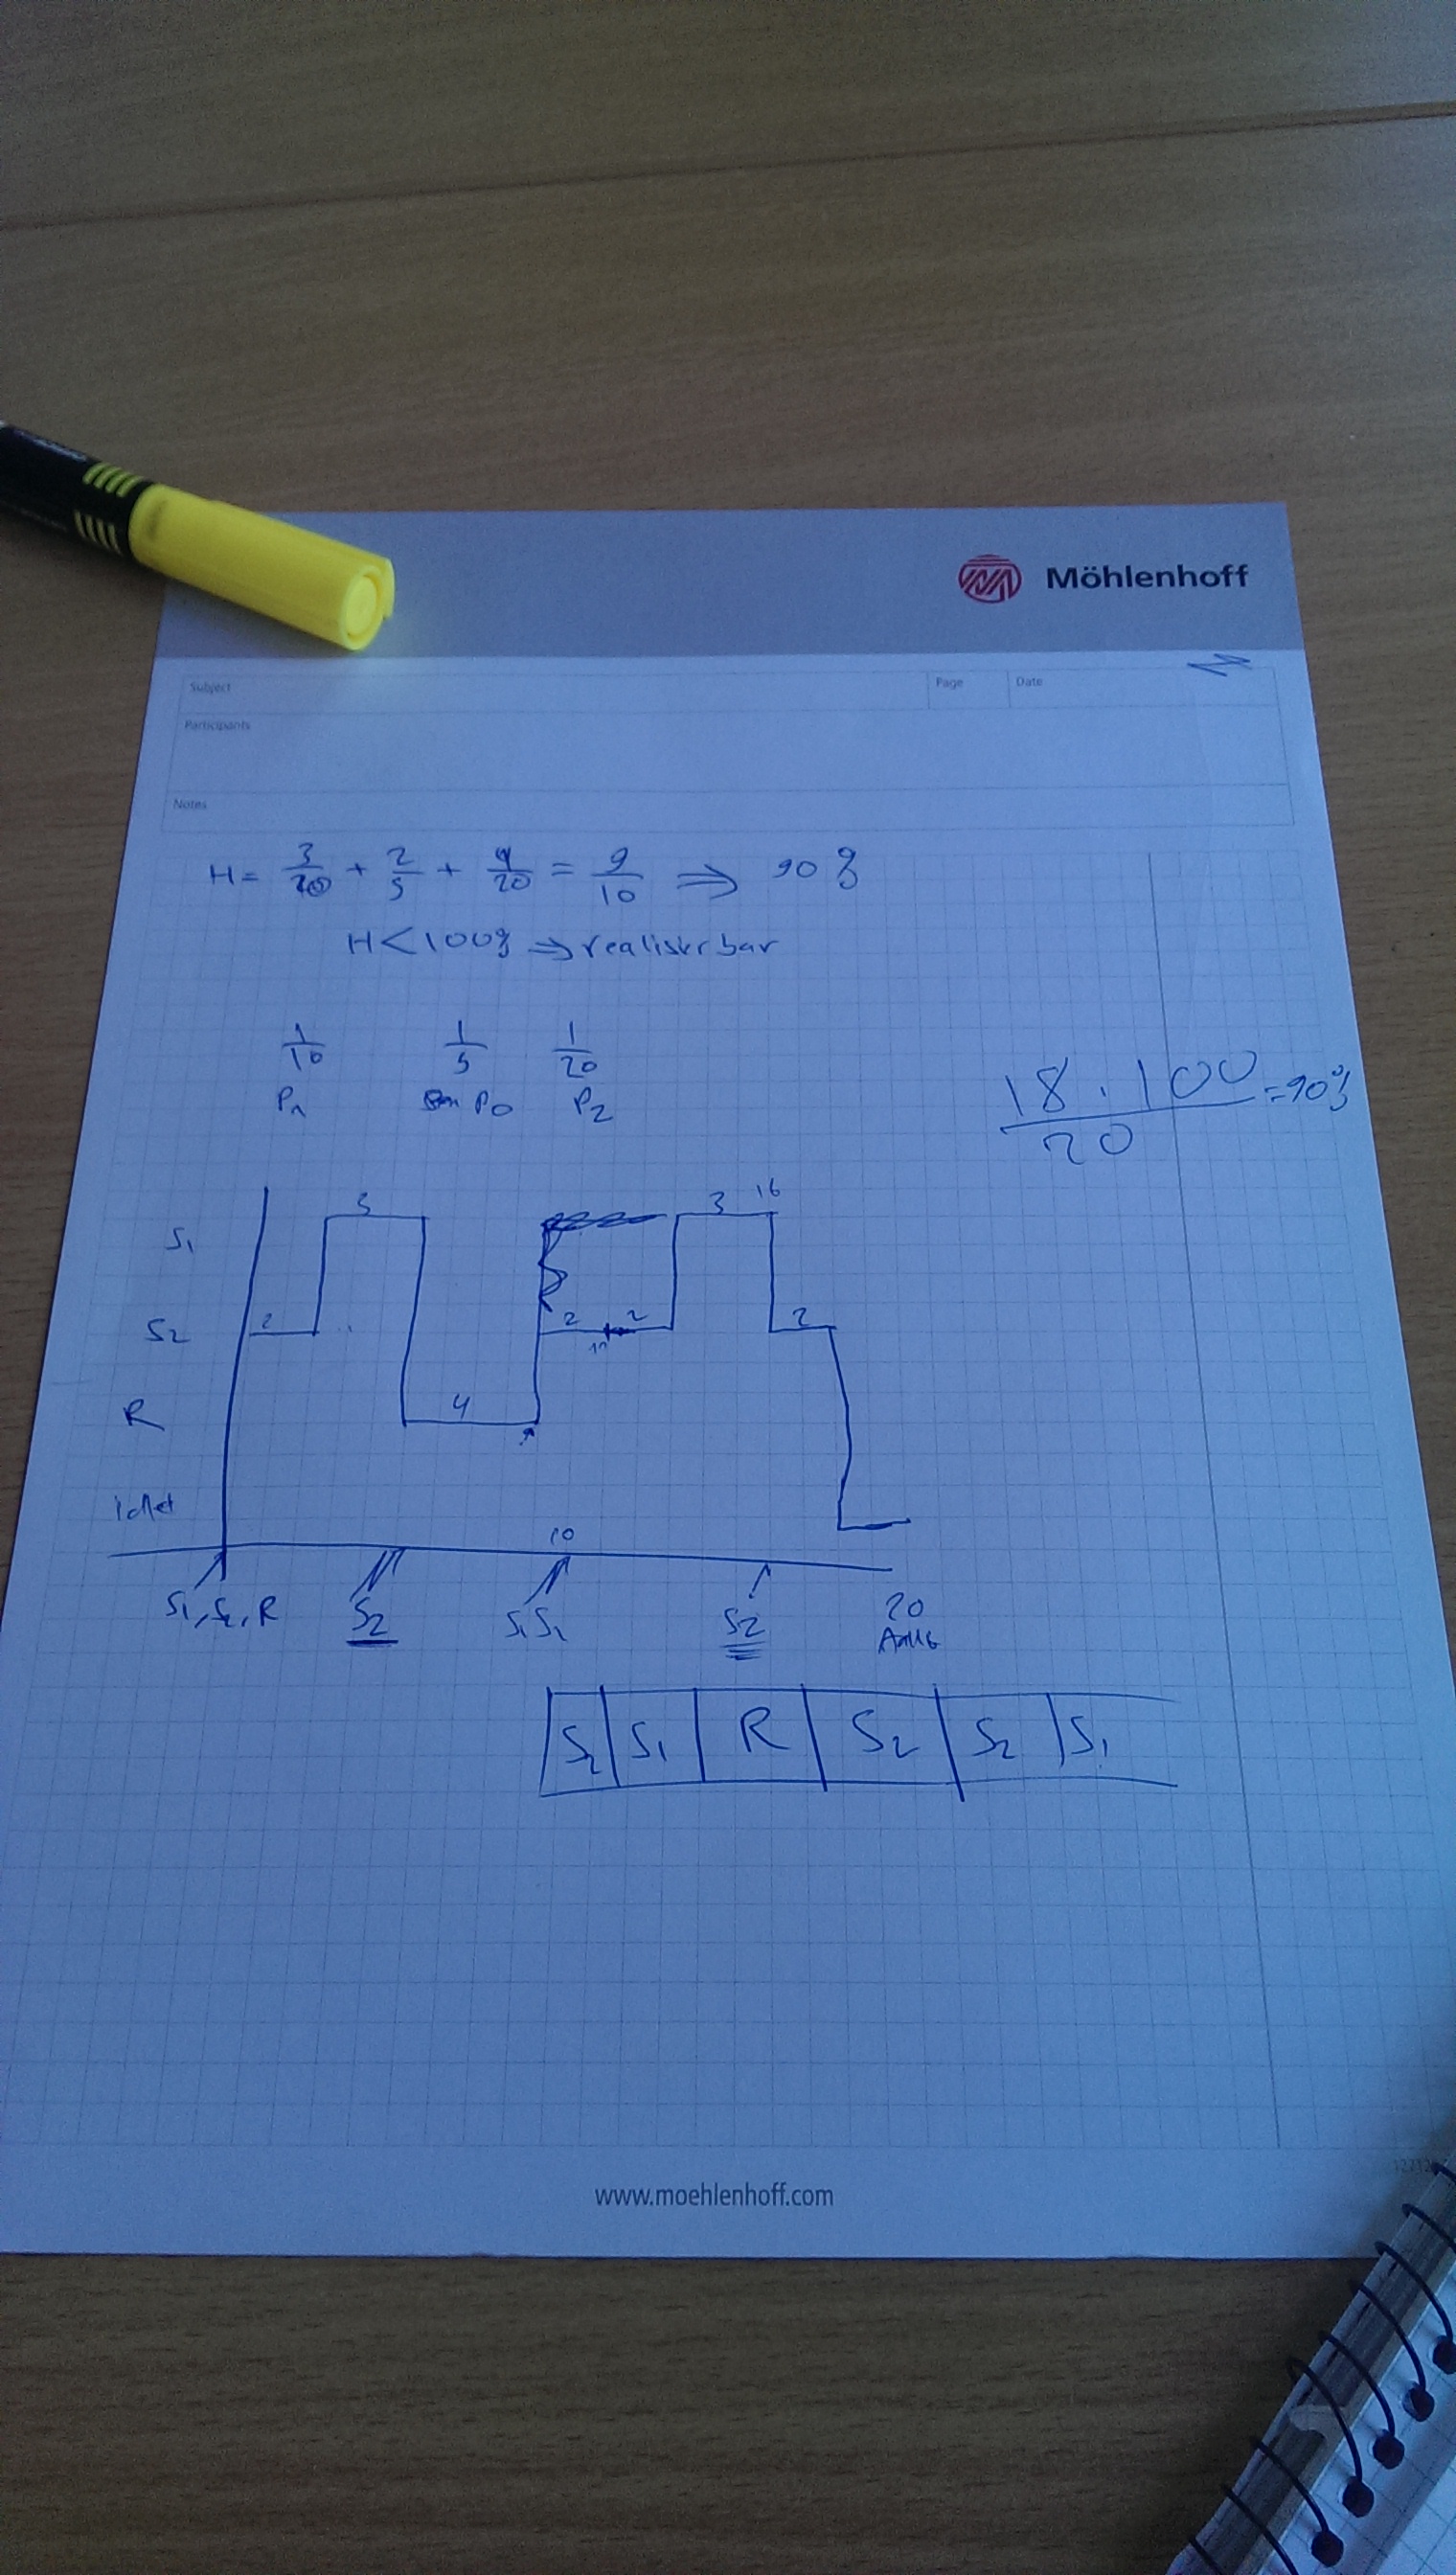 Möhlenhoff
Subject
Page
Date
Participants
Notes
H = 3/20 + 2/5 + 4/20 = 9/10 ⇒ 90 %
H < 100% ⇒ realisirbar
1/10 1/5 1/20
P1 P0 P2
18 . 100 / 20 = 90%
S1 3 3 16
S2 2 2 2 2
R 4
10
S1, S2, R S2 S1 S2 S2 20
S2 S1 R S2 S2 S1
www.moehlenhoff.com